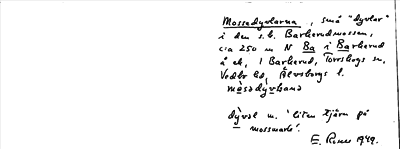 Mossedyvlarna, små "dyvlar"
i den s.k. Barkerudmossen,
c:a 250 m N Ba i Barkerud
å ek, 1 Barkerud, Torrskogs sn,
Vedbo hd, Älvsborgs l.
måsədyvḷana
dyvəl m. 'liten tjärn på
mossmark'.
E. Rosén 1949.